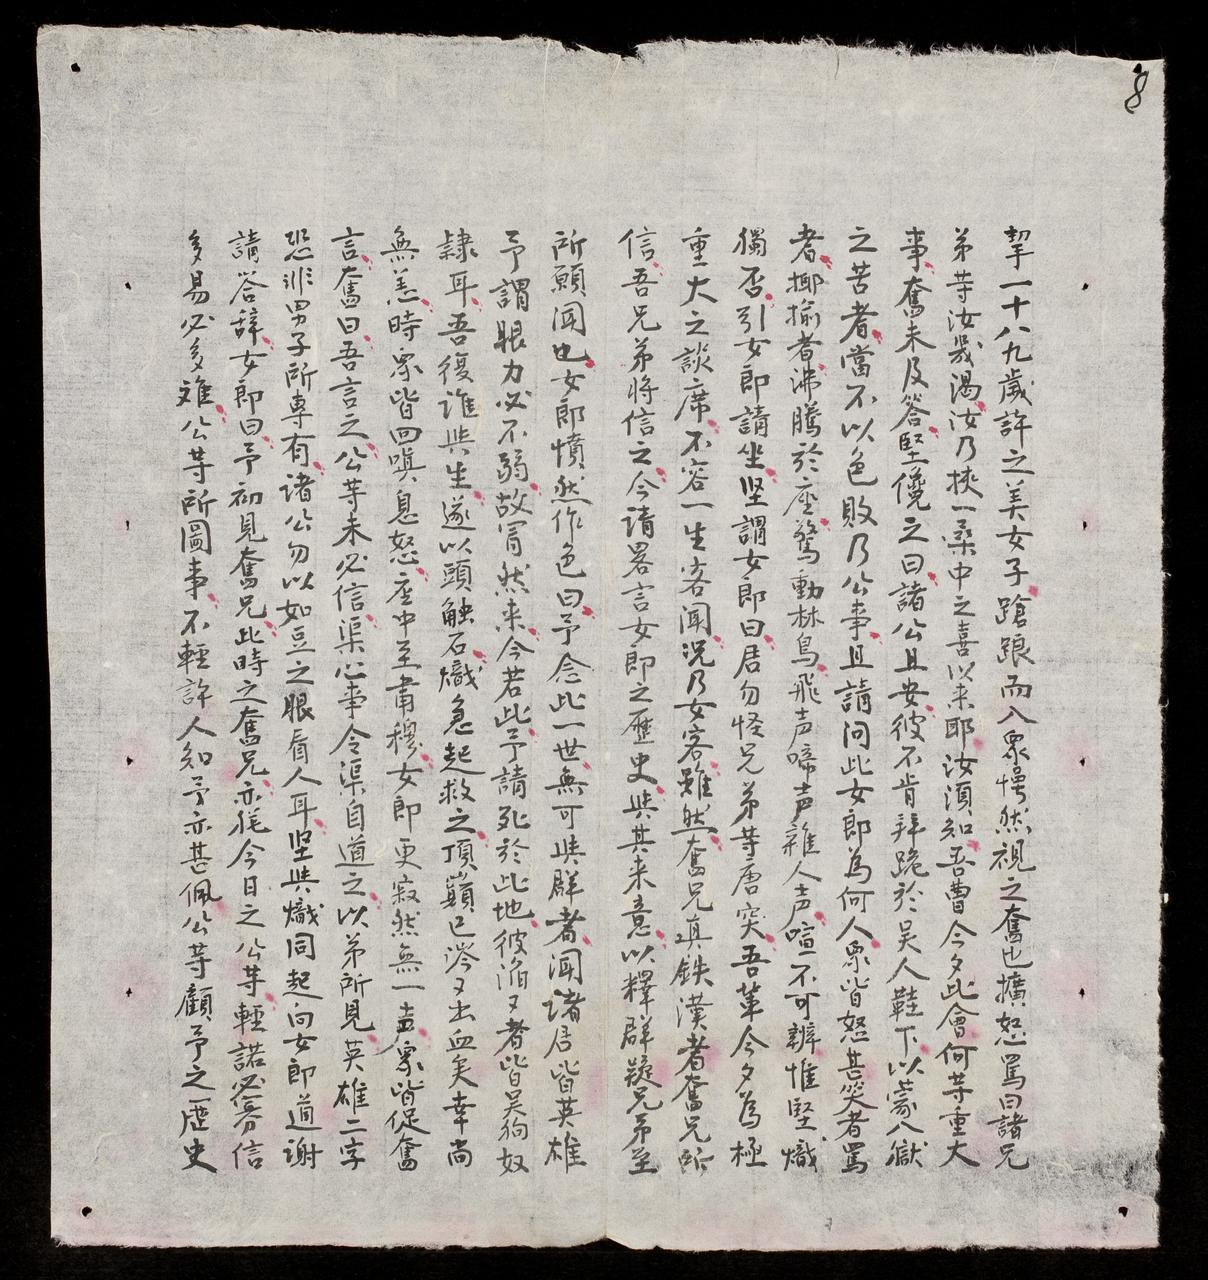 8
挈一十八九歲許之美女子蹌踉而入衆愕然視之奮也擴怒罵曰諸兄
弟等汝幾渴汝乃挾一桑中之喜以来耶汝湏知吾曹今夕此會何等重大
事奮未及答堅儳之曰諸公且安彼不肯辞跪於吴人鞋下以蒙入獄
之苦者當不以色敗乃公事且請问此女郎為何人衆皆怒甚笑者罵
者揶揄者沸騰於座驚動林鳥飛声啼声雜人声喧不可辨惟堅熾
獨否引女郎請坐坚謂女郎曰君勿怪兄弟等唐突吾輩今夕為極
重大之談席不容一生客闻况乃女客雖然奮兄真鉄漢者奮兄所
信吾兄弟將信之今请畧言女郎之歷史與其来意以釋群疑兄弟至
所願闻也女郎憤然作色曰予念此一世無可與群者闻诸君皆英雄
予謂眼力必不弱故冒然来今若此予請死於此地彼滔又者皆吴狗奴
隸耳吾復誰與生遂以頭触石熾急起救之頂巔已涔又出血矣幸尚
無恙時衆皆回嗔息怒座中至肅穆女郎更寂然無一声衆皆促奮
言奮曰吾言之公等未必信渠心事令渠自道之以弟所見英雄二字
恐非男子所專有诸公勿以如豆之眼看人耳坚與熾同起向女郎道谢
請答辞女郎曰予初見奮兄此時之奮兄亦猶今日之公等輕諾必寡信
多易必多难公等所圖事不輕許人知予亦甚佩公等顧予之歷史